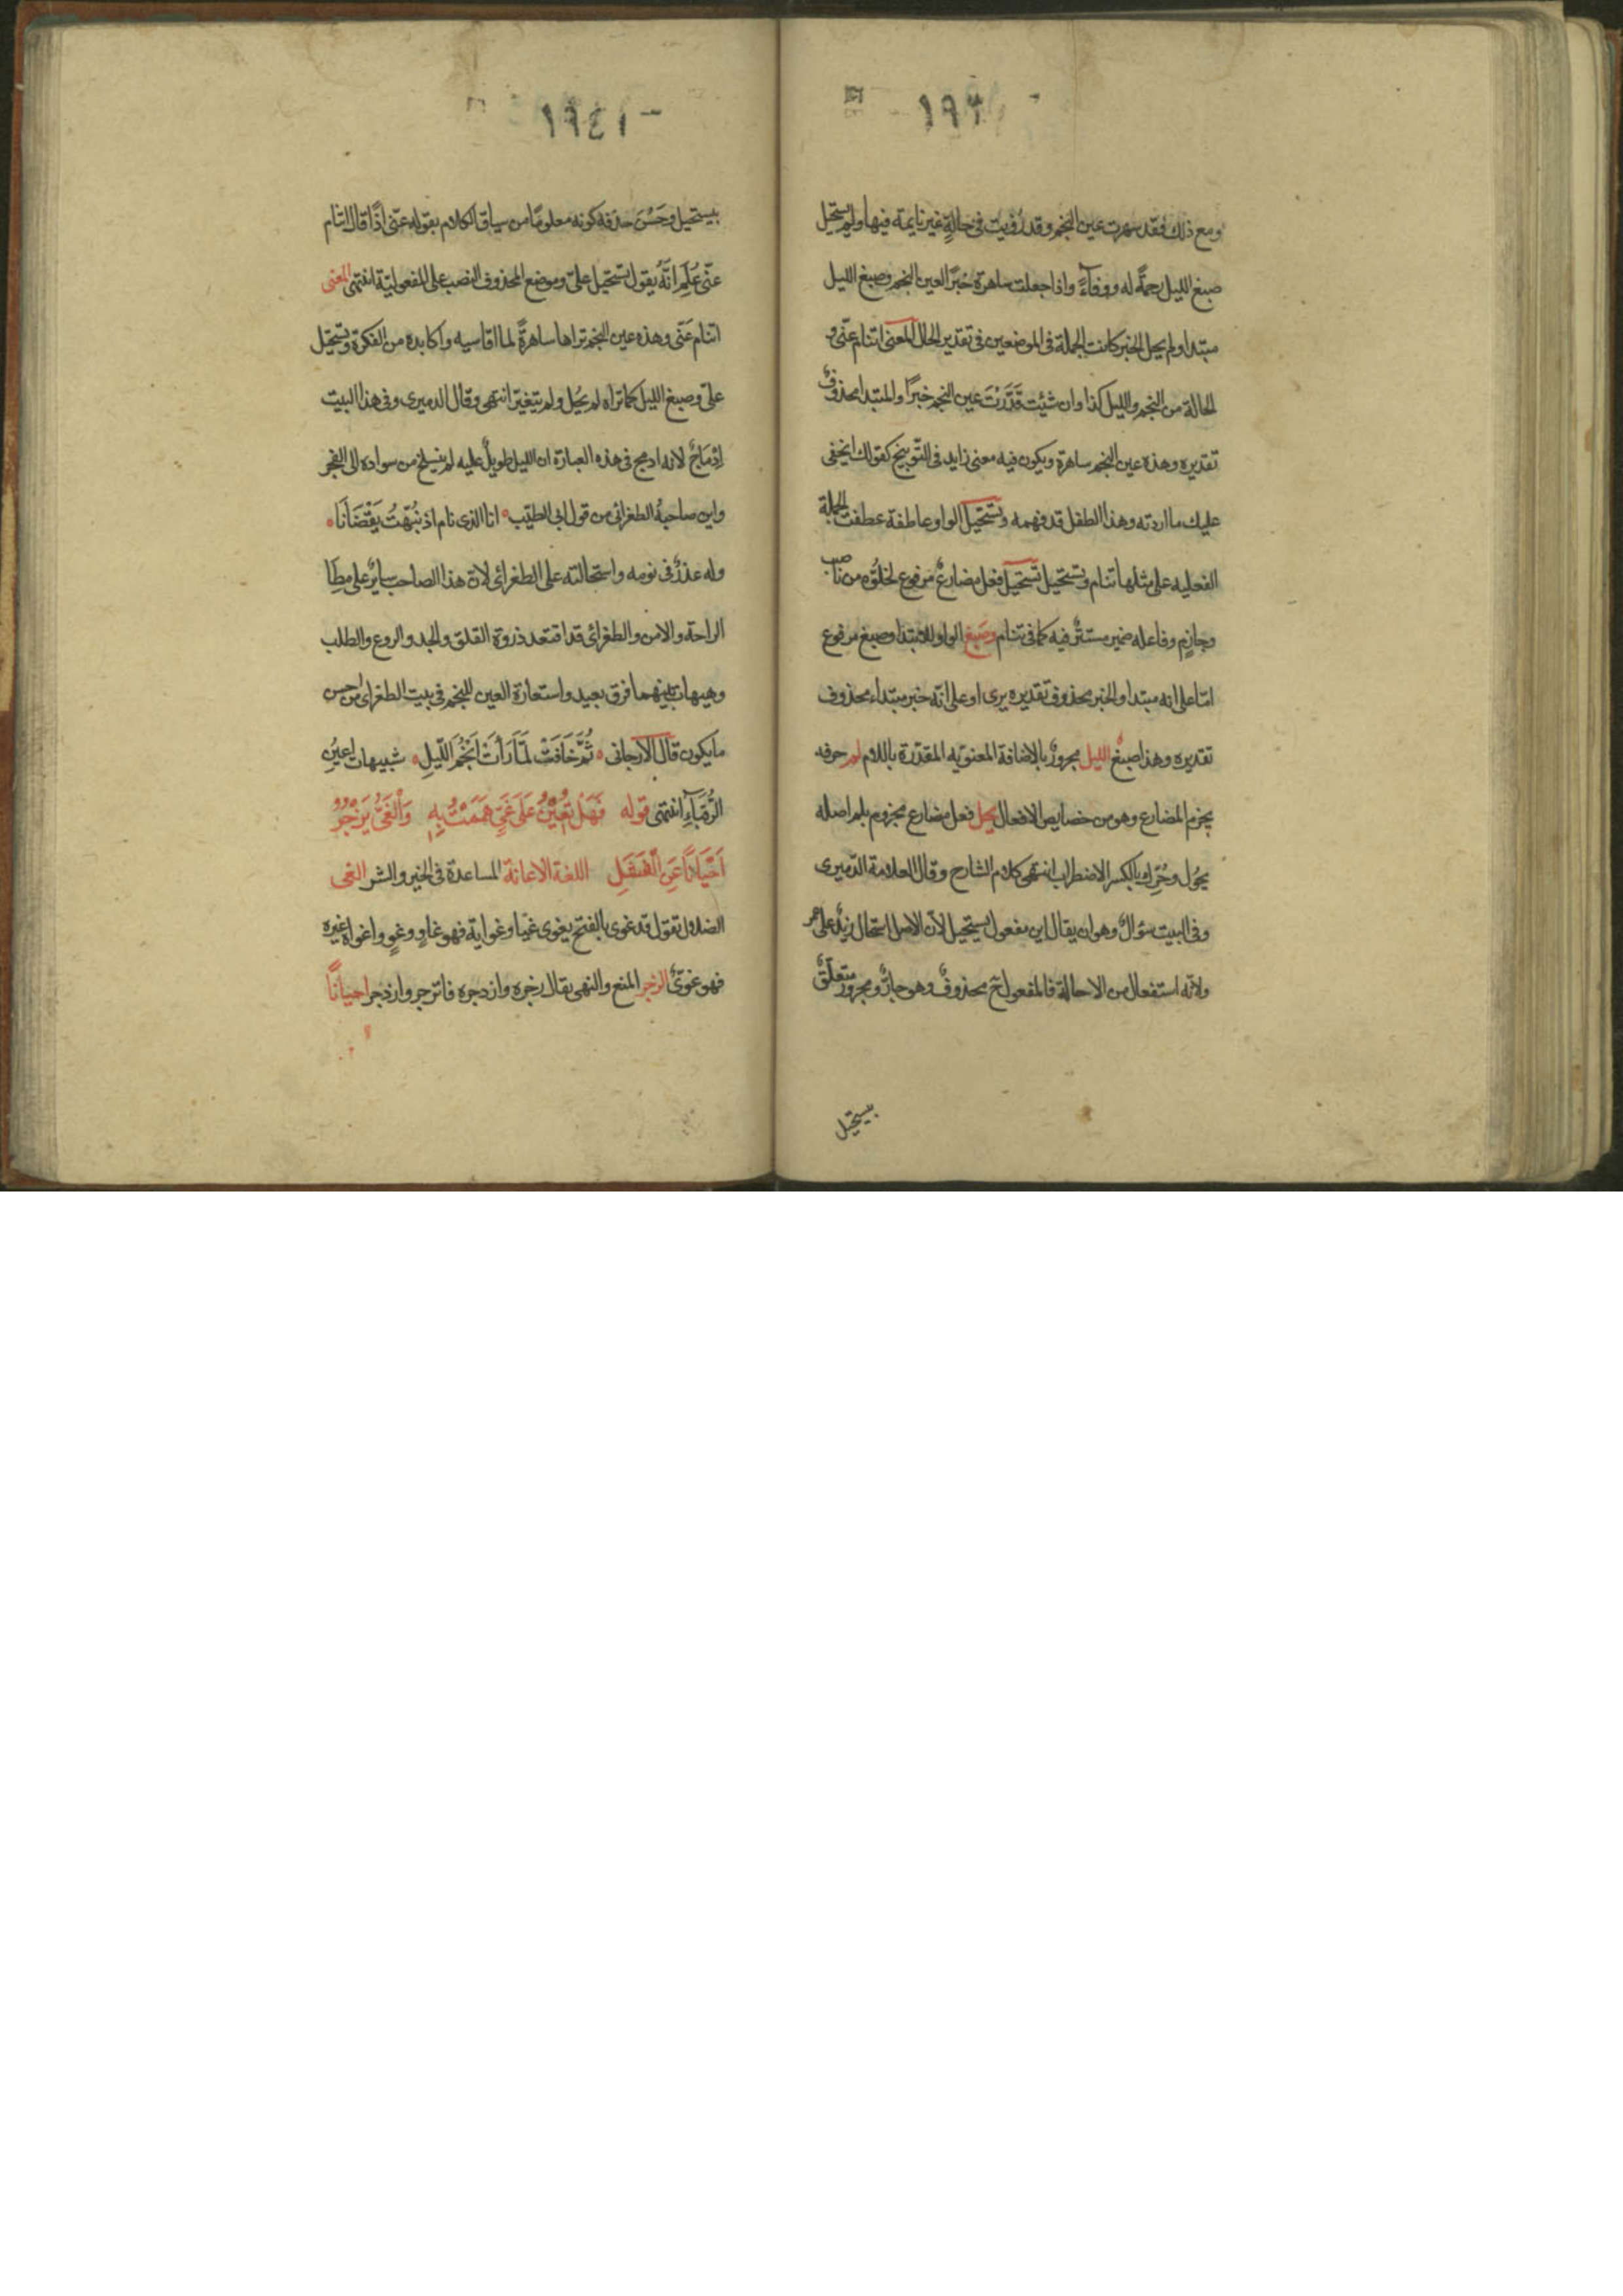 ومع ذلك فقد سهرت عين النجم وقد رؤيت في حالة غير نايمة فيها ولم يستحيل
صبغ الليل رحمةً له ووفاءً واذا جعلت ساهرة خبر العين النجم وصبغ الليل
مبتدا ولم يحل الخبر كانت الجملة في الموضعين في تقدير الحال المعنى اتنام عنّي و
الحالة من النجم والليل كذا وان شئت قَدَّرْتَ عين النجم خبرًا والمبتدا محذوفٌ
تقديره وهذه عين النجم ساهرة ويكون فيه معنى زايد في التّوبيخ كقولك ايخفى
عليك ما اردته وهذا الطفل قد فهمه وتستحيل الواو عاطفة عطفت الجملة
الفعليه على مثلها تنام وتستحيل تستحيل فعل مضارعٌ مرفوع لخلوّه من ناصب
وجازمٍ وفاعله ضمير مستترٌ فيه كما في تنام وصبغ الواو للابتدا وصبغ مرفوع
امّا على انه مبتدا والخبر محذوف تقديره يرى او على انّه خبر مبتداء محذوف
تقديره وهذا صبغ الليل مجرورٌ بالاضافة المعنويّه المقدّرة باللام لم حرف
يجزم المضارع وهو من خصايص الافعال يحل فعل مضارع مجزوم بلم اصله
يحُول وحُرِّك بالكسر الاضطراب انتهى كلام الشارح وقال العلامة الدّميرى
وفي البيت سؤالٌ وهو ان يقال اين مفعول تستحيل لانّ الاصل استحال زيدٌ على عمر
ولانّه استفعال من الاحالة فالمفعول ح محذوفٌ وهو جارٌّ ومجرورٌ متعلّقٌ
بيستحيل
بيستحيل وحَسُنَ حذفه كونه معلومًا من سياق الكلام بقوله عنّى اذًا قال اتنام
عنّى عُلِمَ انّهُ يقول تستحيل علىّ وموضع المحذوف النصب على المفعوليّة انتهى المعنى
اتنام عَنّى وهذه عين النجم تراها ساهرةً لما اقاسيه واكابده من الفكرة وتستحيل
علىّ وصبغ الليل كما تراه لم يحُل ولم يتغيّر انتهى وقال الدميرى وفى هذا البيت
اِدْمَاجٌ لانه ادمج فى هذه العبارة ان الليل طويلٌ عليه لم ينسلخ من سواده الى الفجر
واين صاحبهُ الطغرائى من قول ابى الطيّب انا الذى نام اذ نُبّهتُ يَقْضَانَا
وله عذرٌ فى نومه واستحالته على الطغرائى لانّ هذا الصاحب سايرٌ على مطَا
الراحة والامن والطغرائى قد اقتعد ذروة القلق والجد والروع والطلب
وهيهات بينهما فرق بعيد واستعارة العين للنجم فى بيت الطغراى من احسن
ما يكون قال الارجانى ثُمَّ خَافَتْ لَمَّا رَأَتْ اَنْجُمَ اللّيلِ شبيهات اعينِ
الرُّقَبَاءِ انتهى قوله فَهَلْ تُعِيْنُ عَلَى غَىٍّ هَمَمْتُ بِهِ وَالْغَىُّ يَزْجُرُ
اَحْيَانًا عَنِ الْفَشَلِ اللغة الاعانة المساعدة فى الخير والشر الغى
الضلال تقول قد غوى بالفتح يغوى غيّا وغواية فهو غاوٍ وغوٍ واغواه غيره
فهو غوىٌّ الزجر المنع والنهى يقال زجره وازدجره فانزجر وازدجر احيانًا